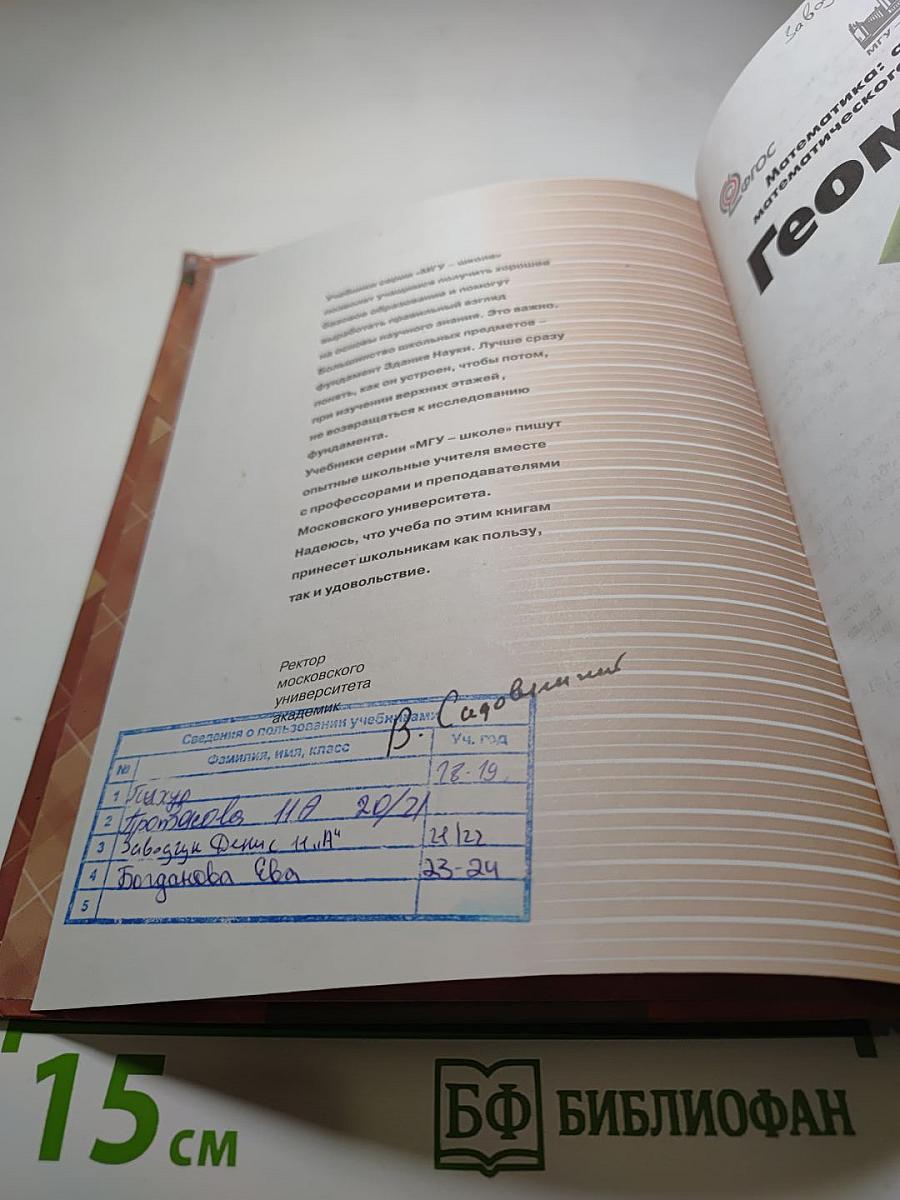 Учебники серии «МГУ – школе»
позволят учащимся получить хорошее
базовое образование и помогут
выработать правильный взгляд
на основы научного знания. Это важно.
Большинство школьных предметов –
фундамент Здания Науки. Лучше сразу
понять, как он устроен, чтобы потом,
при изучении верхних этажей,
не возвращаться к исследованию
фундамента.
Учебники серии «МГУ – школе» пишут
опытные школьные учителя вместе
с профессорами и преподавателями
Московского университета.
Надеюсь, что учеба по этим книгам
принесет школьникам как пользу,
так и удовольствие.
Ректор
московского
университета
академик
В. Садовничий
Сведения о пользовании учебниками
№ Фамилия, имя, класс Уч. год
1 18-19
2 11А 20/21
3 Заводчук Денис 11 „А" 21/22
4 Богданова Ева 23-24
5
МГУ –
ФГОС
Математика:
математического
Геом
15 см
БФ БИБЛИОФАН